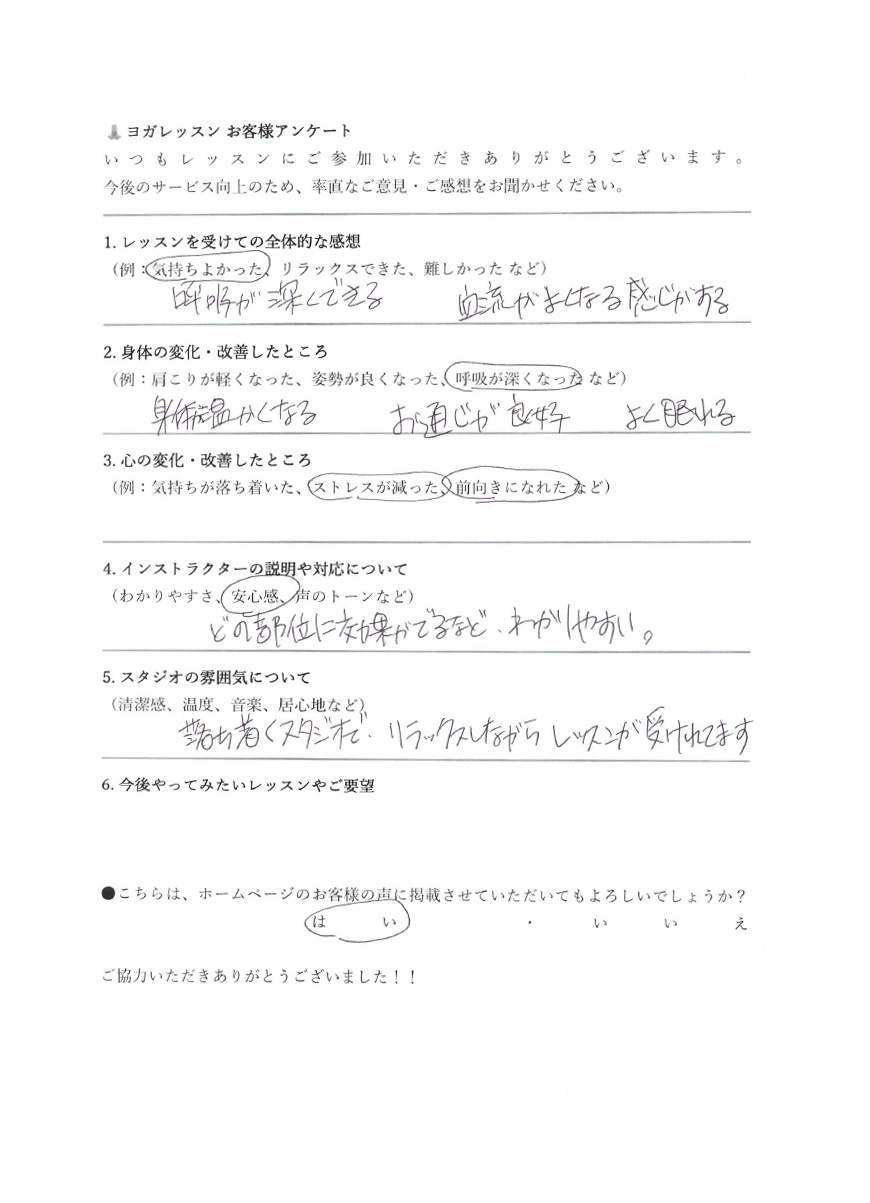 ヨガレッスン お客様アンケート
いつもレッスンにご参加いただきありがとうございます。
今後のサービス向上のため、率直なご意見・ご感想をお聞かせください。
1. レッスンを受けての全体的な感想
（例：気持ちよかった、リラックスできた、難しかった など）
呼吸が深くできる 血流がよくなる感じがする
2. 身体の変化・改善したところ
（例：肩こりが軽くなった、姿勢が良くなった、呼吸が深くなった など）
身体温かくなる お通じが良好 よく眠れる
3. 心の変化・改善したところ
（例：気持ちが落ち着いた、ストレスが減った、前向きになれた など）
4. インストラクターの説明や対応について
（わかりやすさ、安心感、声のトーンなど）
どの部位に効果がでるなど、わかりやすい。
5. スタジオの雰囲気について
（清潔感、温度、音楽、居心地など）
落ち着くスタジオで、リラックスしながらレッスンが受けれてます
6. 今後やってみたいレッスンやご要望
●こちらは、ホームページのお客様の声に掲載させていただいてもよろしいでしょうか？
はい ・ いいえ
ご協力いただきありがとうございました！！